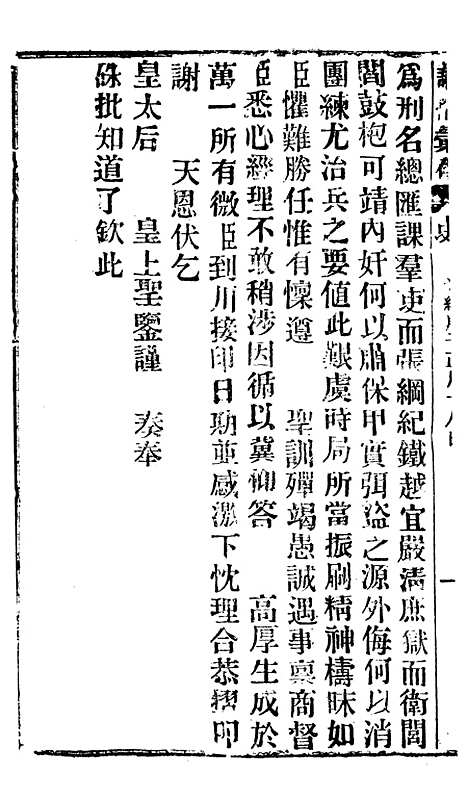 諭摺彙存
為刑名總匯課羣吏而張綱紀鐵越宜嚴清庶獄而衛閭
閻鼓枹可靖內奸何以肅保甲實弭盜之源外侮何以消
團練尤治兵之要值此艱虞時局所當振刷精神檮昧如
臣懼難勝任惟有懍遵 聖訓殫竭愚誠遇事稟商督
臣悉心經理不敢稍涉因循以冀仰答 高厚生成於
萬一所有微臣到川接印日期並感激下忱理合恭摺叩
謝 天恩伏乞
皇太后 皇上聖鑒謹 奏奉
硃批知道了欽此